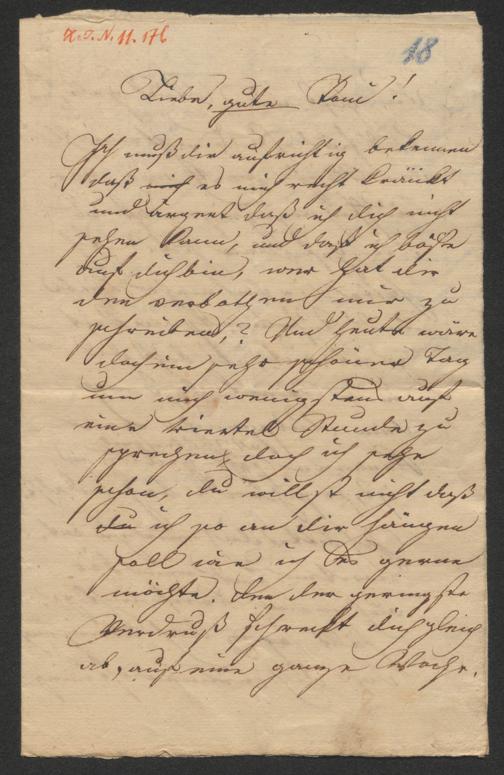 H.I.N. 11.176
18
Liebe, gute Toni!
Ich muß dir aufrichtig bekennen
daß mich es mich recht kränkt
und ärgert daß ich dich nicht
sehen kann, und daß ich böse
auf dich bin, wer hat dir
den verbothen mir zu
schreiben,? Und heute wäre
doch ein sehr schöner Tag
um mich wenigstens auf
eine viertel Stunde zu
sprechen, doch ich sehe
schon, du willst nicht daß
du ich so an dir hängen
soll wie ich es gerne
möchte. den der geringste
Verdruß schreckt dich gleich
ab, auf eine ganze Woche.